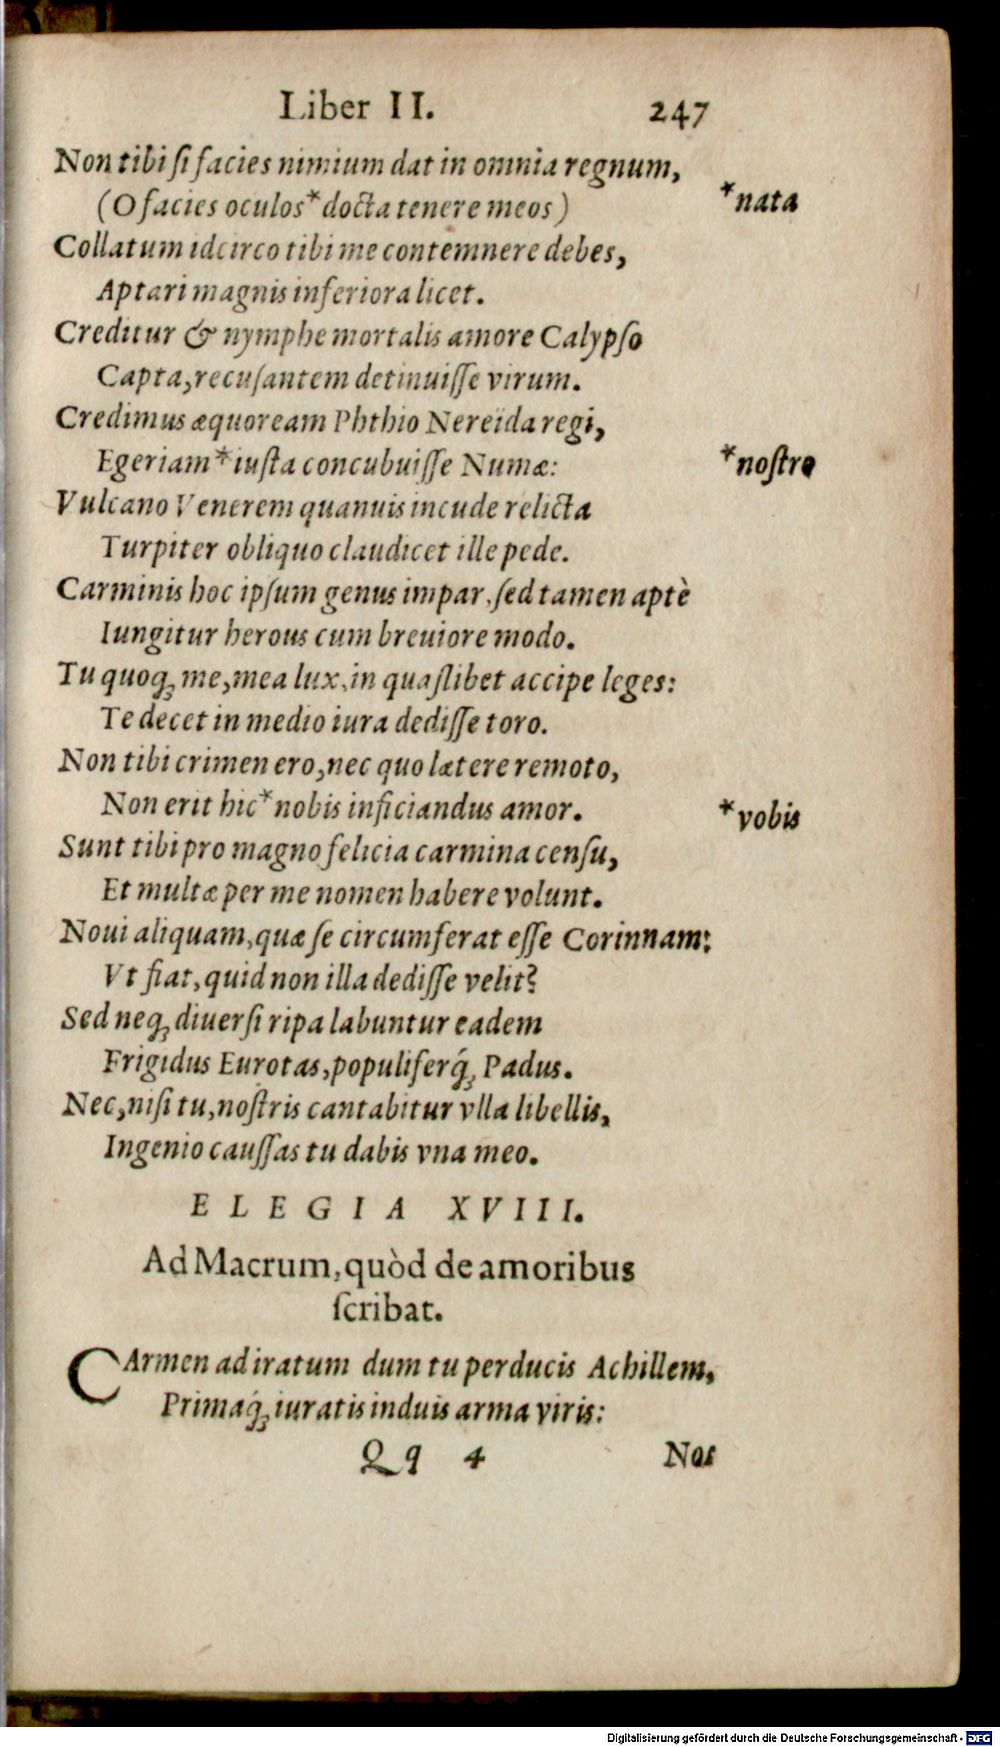 Liber II. 247
Non tibi ſi facies nimium dat in omnia regnum,
(O facies oculos* docta tenere meos)
*nata
Collatum idcirco tibi me contemnere debes,
Aptari magnis inferiora licet.
Creditur & nymphe mortalis amore Calypſo
Capta, recuſantem detinuiſſe virum.
Credimus æquoream Phthio Nereïda regi,
Egeriam* iuſta concubuiſſe Numæ:
*noſtro
Vulcano Venerem quanuis incude relicta
Turpiter obliquo claudicet ille pede.
Carminis hoc ipſum genus impar, ſed tamen aptè
Iungitur herous cum breuiore modo.
Tu quoq; me, mea lux, in quaſlibet accipe leges:
Te decet in medio iura dediſſe toro.
Non tibi crimen ero, nec quo lætere remoto,
Non erit hic* nobis inficiandus amor.
*vobis
Sunt tibi pro magno felicia carmina cenſu,
Et multæ per me nomen habere volunt.
Noui aliquam, quæ ſe circumferat eſſe Corinnam:
Vt fiat, quid non illa dediſſe velit?
Sed neq; diuerſi ripa labuntur eadem
Frigidus Eurotas, populiferq́; Padus.
Nec, niſi tu, noſtris cantabitur vlla libellis,
Ingenio cauſſas tu dabis vna meo.
ELEGIA XVIII.
Ad Macrum, quòd de amoribus
ſcribat.
CArmen ad iratum dum tu perducis Achillem,
Primaq́; iuratis induis arma viris:
Qq 4 Nos
Digitalisierung gefördert durch die Deutsche Forschungsgemeinschaft - DFG